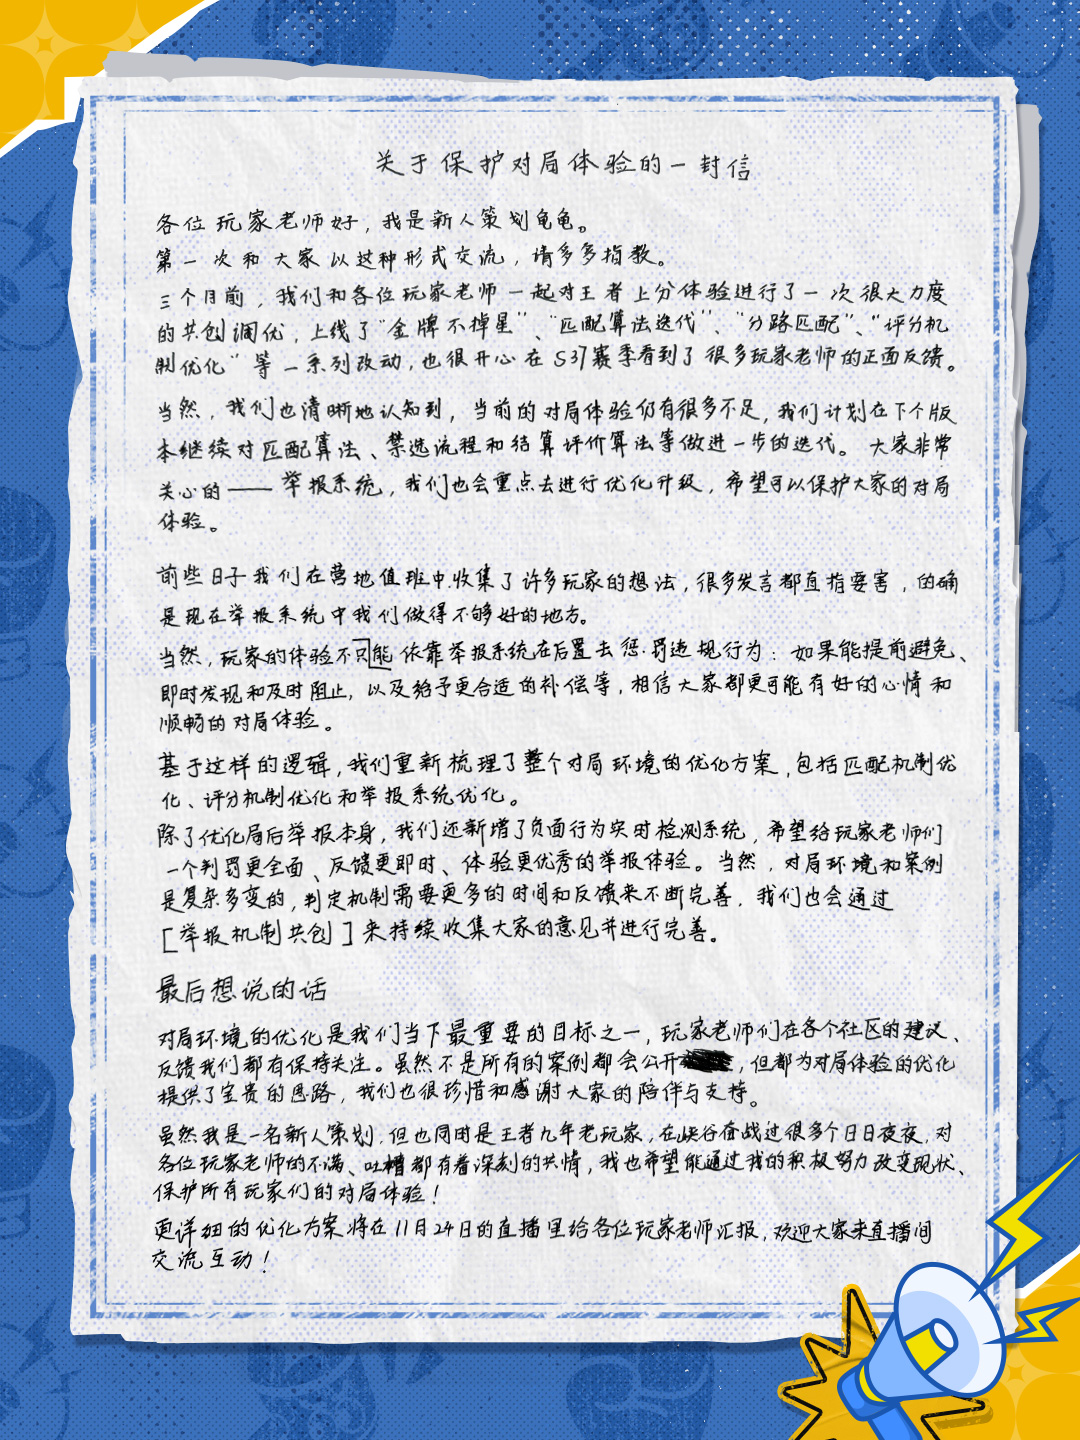 关于保护对局体验的一封信
各位玩家老师好，我是新人策划龟龟。
第一次和大家以这种形式交流，请多多指教。
三个月前，我们和各位玩家老师一起对王者上分体验进行了一次很大力度
的共创调优，上线了“金牌不掉星”、“匹配算法迭代”、“分路匹配”、“评分机
制优化”等一系列改动，也很开心在S37赛季看到了很多玩家老师的正面反馈。
当然，我们也清晰地认知到，当前的对局体验仍有很多不足，我们计划在下个版
本继续对匹配算法、禁选流程和结算评价算法等做进一步的迭代。大家非常
关心的——举报系统，我们也会重点去进行优化升级，希望可以保护大家的对局
体验。
前些日子我们在营地值班中收集了许多玩家的想法，很多发言都直指要害，的确
是现在举报系统中我们做得不够好的地方。
当然，玩家的体验不只能依靠举报系统在后置去惩罚违规行为：如果能提前避免、
即时发现和及时阻止，以及给予更合适的补偿等，相信大家都更可能有好的心情和
顺畅的对局体验。
基于这样的逻辑，我们重新梳理了整个对局环境的优化方案，包括匹配机制优
化、评分机制优化和举报系统优化。
除了优化局后举报本身，我们还新增了负面行为实时检测系统，希望给玩家老师们
一个判罚更全面、反馈更即时、体验更优秀的举报体验。当然，对局环境和案例
是复杂多变的，判定机制需要更多的时间和反馈来不断完善，我们也会通过
[举报机制共创]来持续收集大家的意见并进行完善。
最后想说的话
对局环境的优化是我们当下最重要的目标之一，玩家老师们在各个社区的建议、
反馈我们都有保持关注。虽然不是所有的案例都会公开，但都为对局体验的优化
提供了宝贵的思路，我们也很珍惜和感谢大家的陪伴与支持。
虽然我是一名新人策划，但也同时是王者九年老玩家，在峡谷奋战过很多个日日夜夜，对
各位玩家老师的不满、吐槽都有着深刻的共情，我也希望能通过我的积极努力改变现状、
保护所有玩家们的对局体验！
更详细的优化方案将在11月24日的直播里给各位玩家老师汇报，欢迎大家来直播间
交流互动！